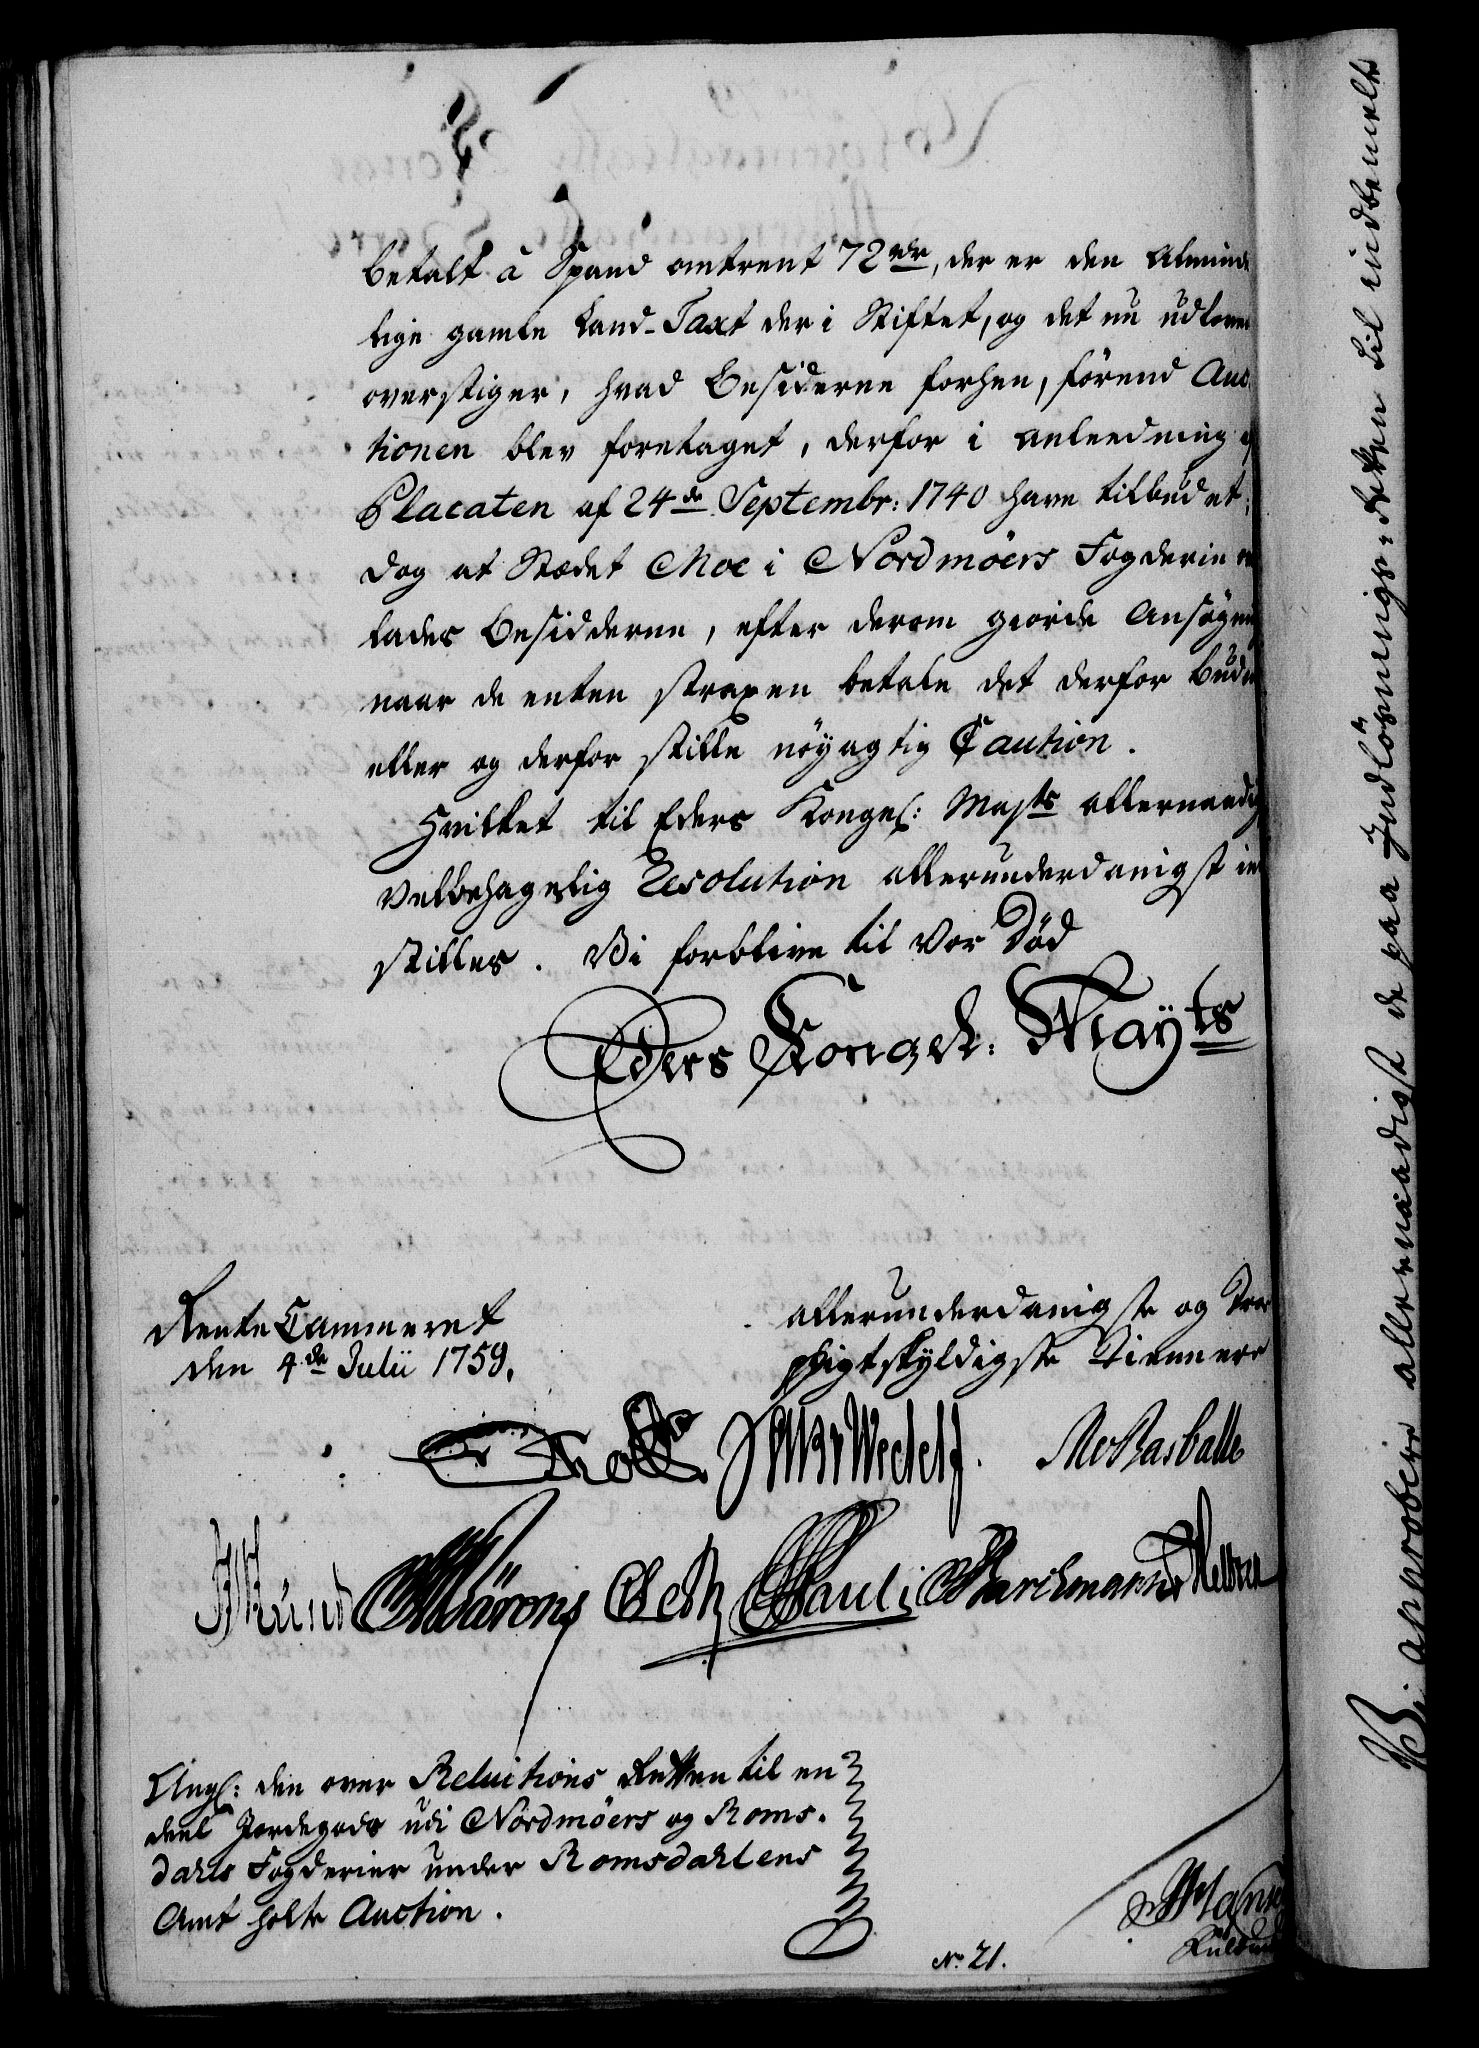 betalt â Spand omtrent 72 rdr, der er den Alminde
lige gamle Land-Taxt der i Stiftet, og det nu udlovede
overstiger, hvad Besidderne forhen, förend Auc
tionen blev foretaget, derfor i anleedning af
Placaten af 24de Septembr: 1740 have tilbudet;
Dog at Stædet Moe i Nordmöers Fogderie
lades Besidderne, efter derom giorde Ansögning
naar de enten straxen betale det derfor budne
eller og derfor stille nöyagtig Caution.
Hvilket til Eders Kongel: Majts allernaadigst
Velbehagelig Resolution allerunderdanigst ind
stilles. Vi forblive til Vor Död
Eders Kongel: Mayts
Rente Cammeret
den 4de Julii 1759.
allerunderdanigste og Troe
pligtskyldigste Tiennere
Wedelf. MoRasballe
Pauli Barchmann
Angl: den over Reluitions Retten til en
deel Jordegods udi Nordmöers og Roms-
dahls Fogderier under Romsdahlens
Amt holte Auction.
No 21.
Vi approbere allernaadigst de paa Indlösnings-Retten til indbemelte